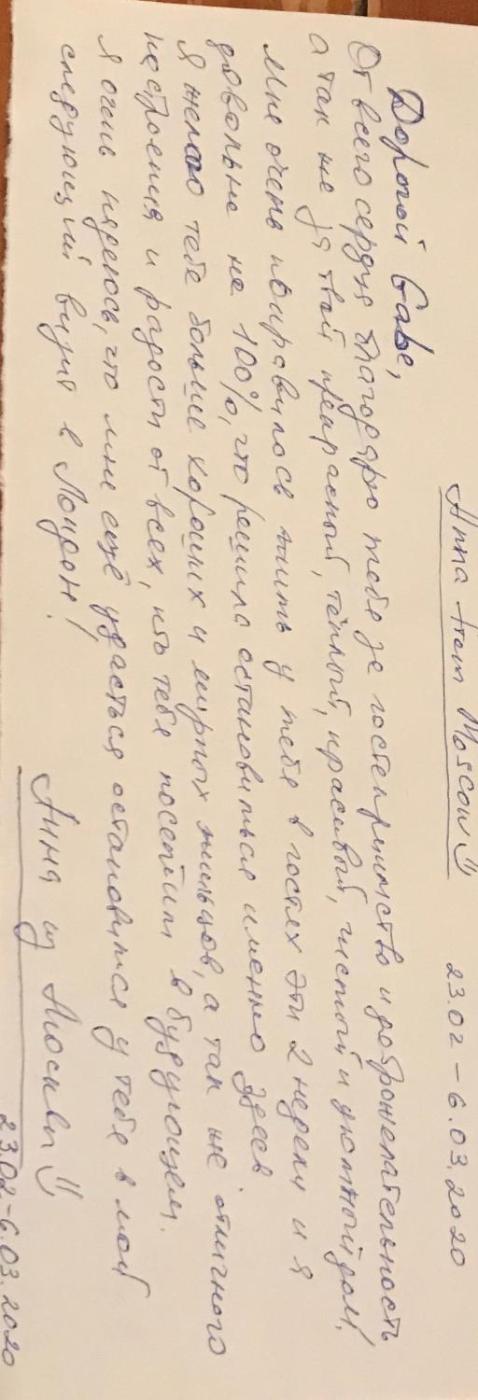 Anna from Moscow 23.02 – 6.03.2020
Дорогой Gabe,
От всего сердца благодарю тебя за гостеприимство и доброжелательность
а так же за твой прекрасный, тёплый, красивый, чистый и уютный дом!
Мне очень понравилось жить у тебя в гостях эти 2 недели и я
довольна на 100%, что решила остановиться именно здесь
Я желаю тебе больше хороших и мирных жильцов, а так же отличного
настроения и радости от всех, кто тебя посетит в будующем.
Я очень надеюсь, что мне ещё удасться остановится у тебя в мой
следующий визит в Лондон!
Анна из Москвы
23.02–6.03.2020